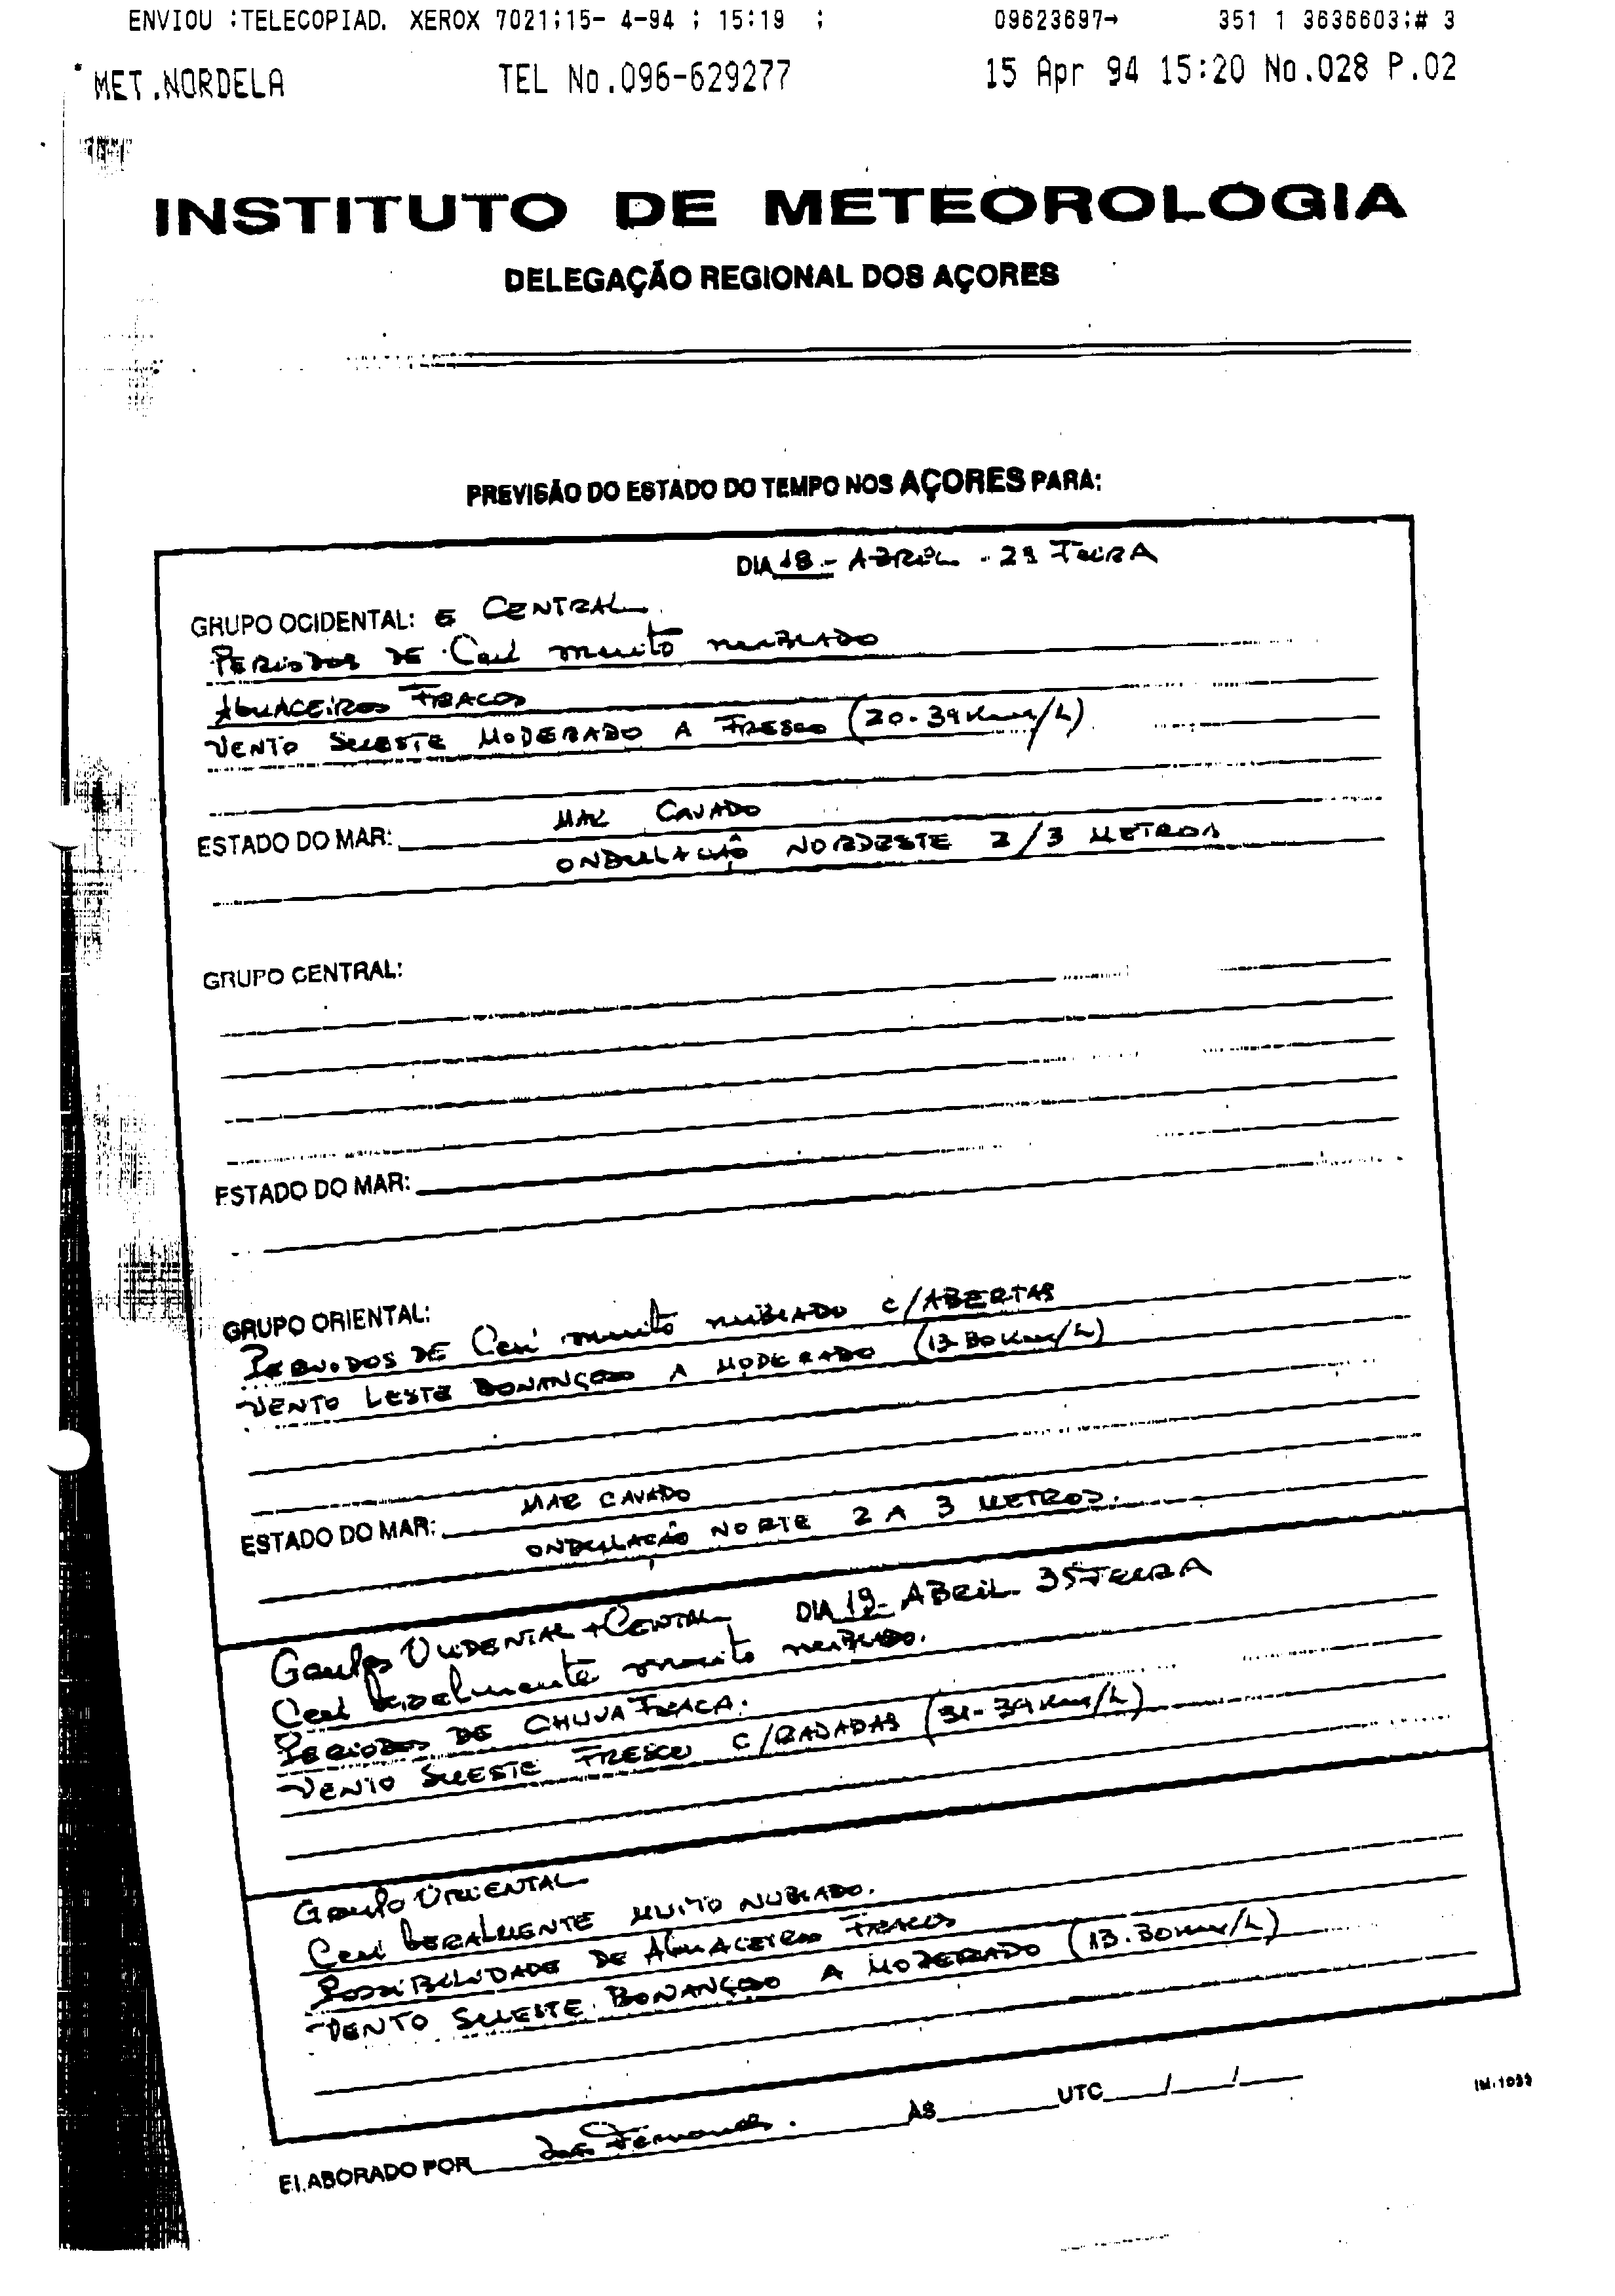 ENVIOU :TELECOPIAD. XEROX 7021;15- 4-94 ; 15:19 ; 09623697→ 351 1 3636603;# 3
MET.NORDELA TEL No.096-629277 15 Apr 94 15:20 No.028 P.02
INSTITUTO DE METEOROLOGIA
DELEGAÇÃO REGIONAL DOS AÇORES
PREVISÃO DO ESTADO DO TEMPO NOS AÇORES PARA:
DIA 18 - ABRIL - 2ª FEIRA
GRUPO OCIDENTAL: E CENTRAL
PERIODOS DE Céu muito nublado
AGUACEIROS FRACOS
VENTO SUESTE MODERADO A FRESCO (20-39 Km/h)
MAR CAVADO
ESTADO DO MAR:
ONDULAÇÃO NORDESTE 2/3 METROS
GRUPO CENTRAL:
ESTADO DO MAR:
GRUPO ORIENTAL:
PERIODOS DE Céu muito nublado c/ABERTAS
VENTO LESTE BONANÇOSO A MODERADO (13-30 Km/h)
MAR CAVADO
ESTADO DO MAR:
ONDULAÇÃO NORTE 2 A 3 METROS.
DIA 19 - ABRIL - 3ª FEIRA
Grupos OCIDENTAL + CENTRAL
Céu geralmente muito nublado.
PERIODOS DE CHUVA FRACA.
VENTO SUESTE FRESCO C/RAJADAS (31-39 Km/h)
Grupo ORIENTAL
Céu GERALMENTE MUITO NUBLADO.
POSSIBILIDADE DE AGUACEIROS FRACOS
VENTO SUESTE BONANÇOSO A MODERADO (13-30 Km/h)
ELABORADO POR Fernandes. ÀS UTC / /
IM-1033